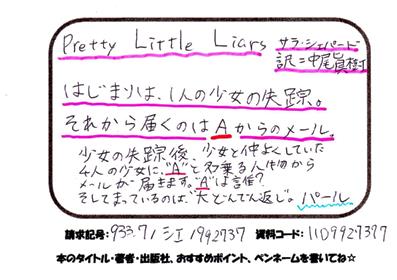 Pretty Little Liars サラ・シェパード
訳=中尾眞樹
はじまりは、1人の少女の失踪。
それから届くのはAからのメール。
少女の失踪後、少女と仲よくしていた
4人の少女に、"A"と名乗る人物から
メールが届きます。"A"は言誰?
そしてまっているのは、"大どんでん返し"。 パール
請求記号: 933.7/シエ/992737 資料コード: 1109927377
本のタイトル・著者・出版社、おすすめポイント、ペンネームを書いてね☆